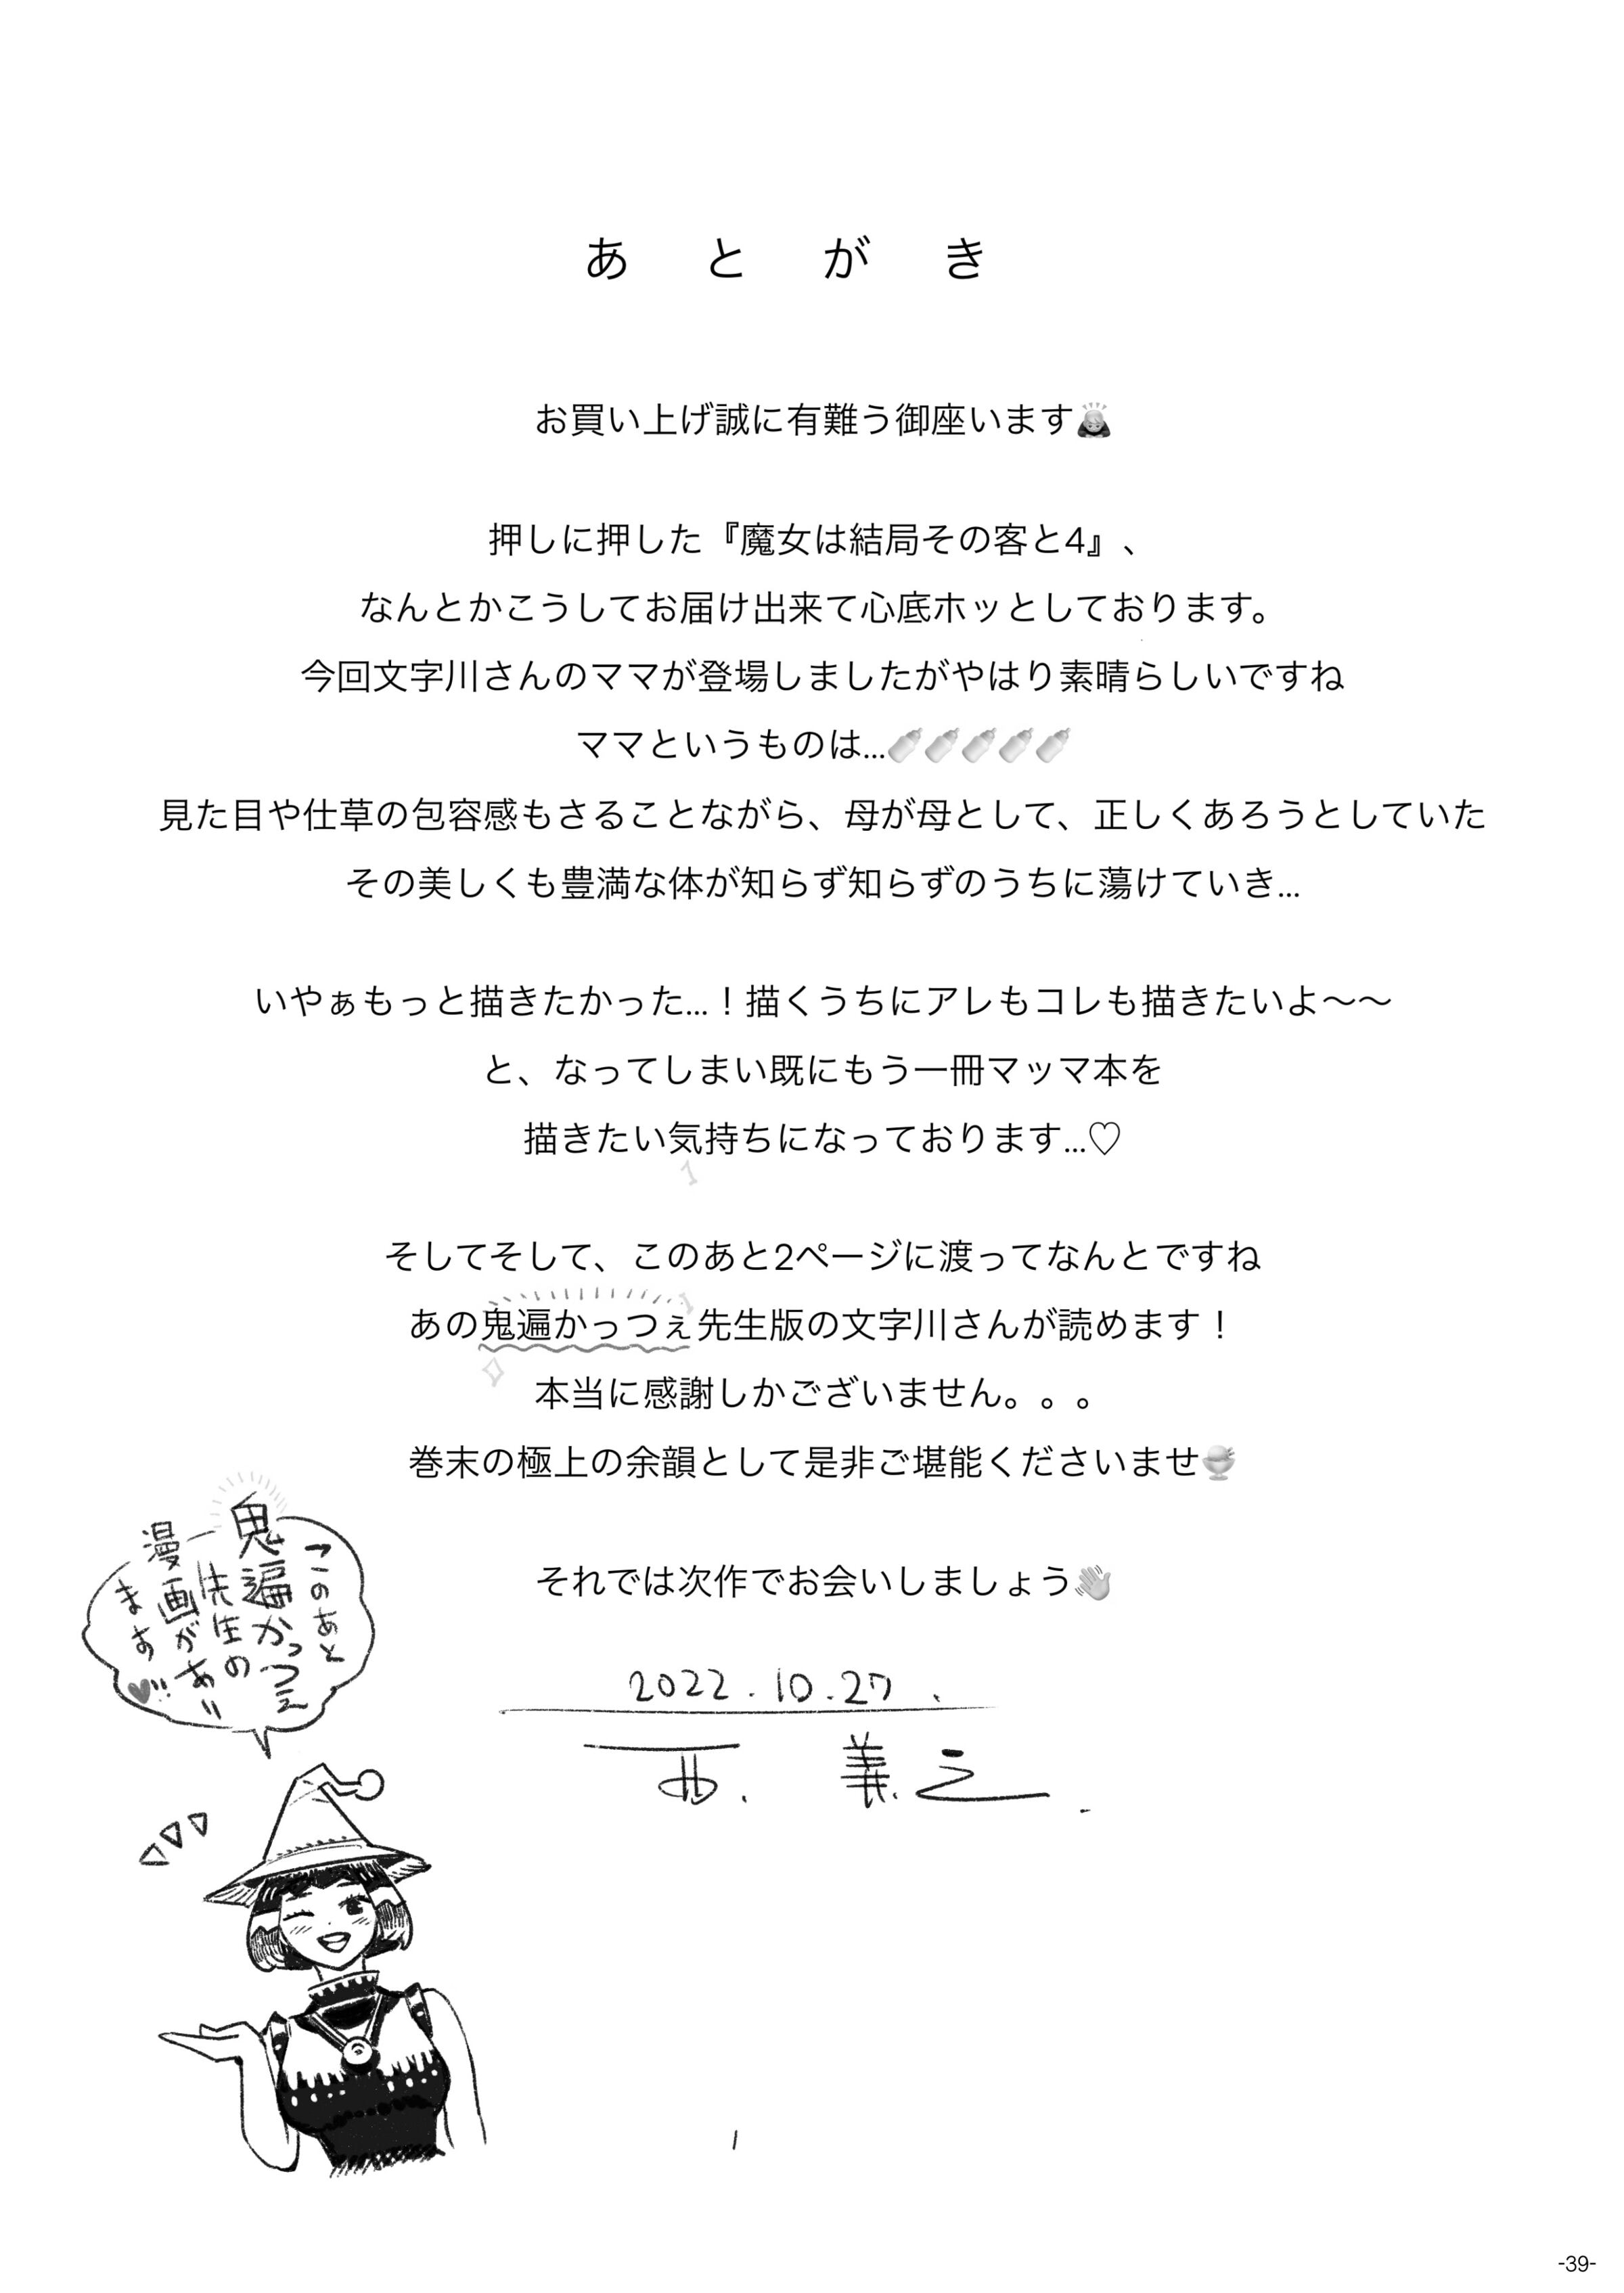 あとがき
お買い上げ誠に有難う御座います🙇
押しに押した『魔女は結局その客と4』、
なんとかこうしてお届け出来て心底ホッとしております。
今回文字川さんのママが登場しましたがやはり素晴らしいですね
ママというものは...🍼🍼🍼🍼🍼
見た目や仕草の包容感もさることながら、母が母として、正しくあろうとしていた
その美しくも豊満な体が知らず知らずのうちに蕩けていき...
いやぁもっと描きたかった...！描くうちにアレもコレも描きたいよ〜〜
と、なってしまい既にもう一冊マッマ本を
描きたい気持ちになっております...♡
そしてそして、このあと2ページに渡ってなんとですね
あの鬼遍かっつぇ先生版の文字川さんが読めます！
本当に感謝しかございません。。。
巻末の極上の余韻として是非ご堪能くださいませ🍨
それでは次作でお会いしましょう👋
2022.10.27.
西.義之.
このあと
鬼遍かっつぇ
先生の
漫画があり
ます♥!!
-39-